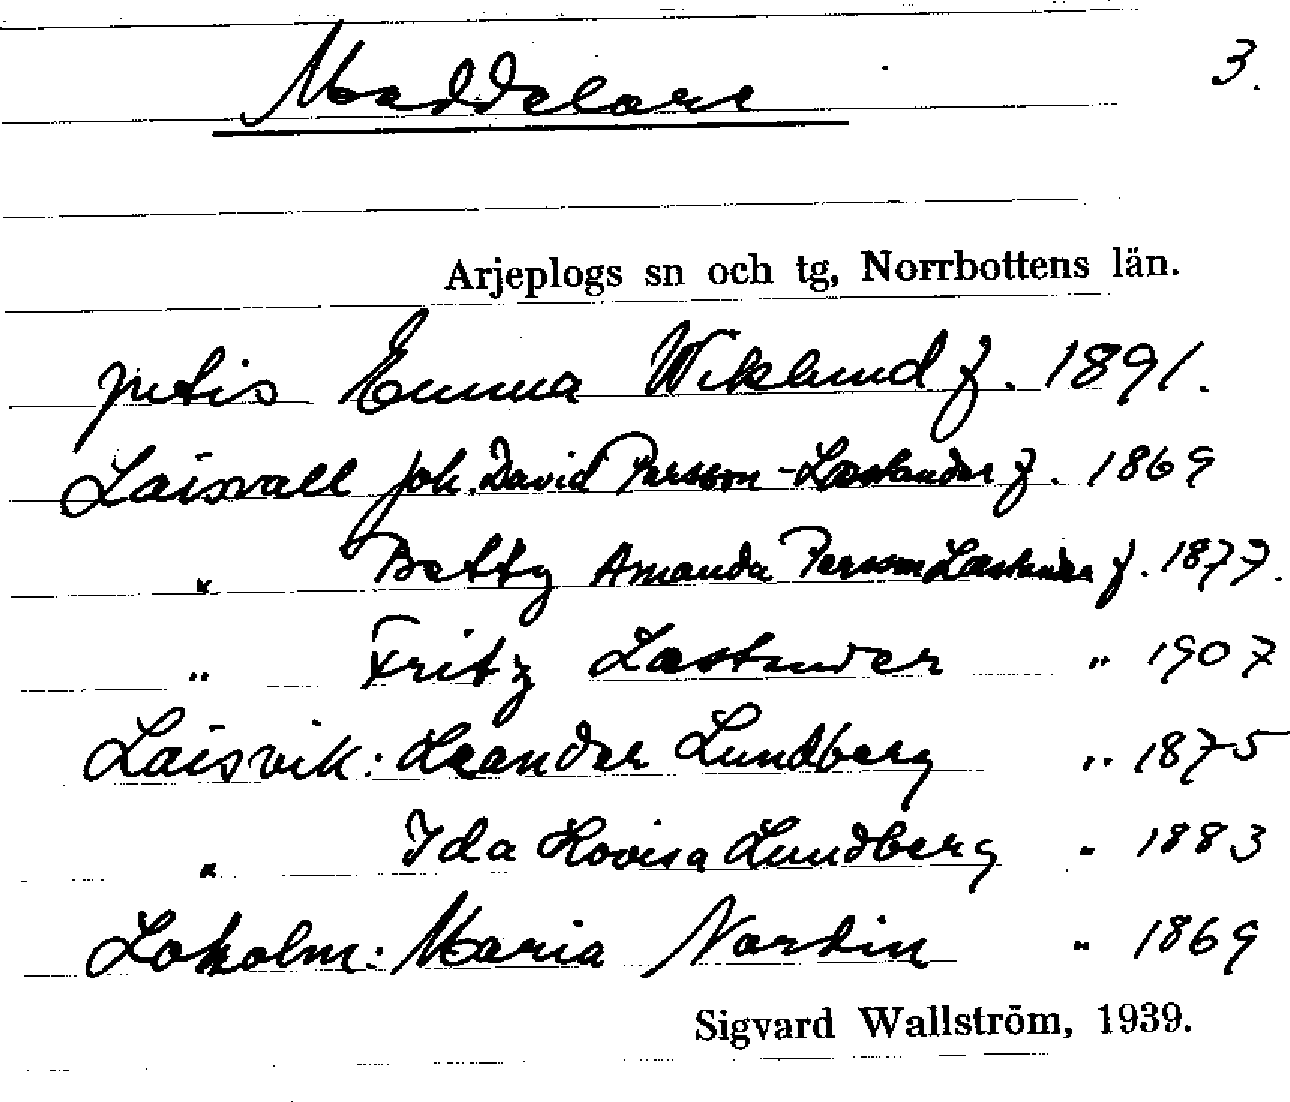 Meddelare 3.
Arjeplogs sn och tg, Norrbottens län.
Jutis Emma Wiklund f. 1891.
Laisvall Joh. David Persson-Læstander f. 1869
" Betty Amanda Persson Læstander f. 1877.
" Fritz Læstander " 1907
Laisvik: Leander Lundberg " 1875
" Ida Lovisa Lundberg " 1883
Loholm: Maria Nordin " 1869
Sigvard Wallström, 1939.